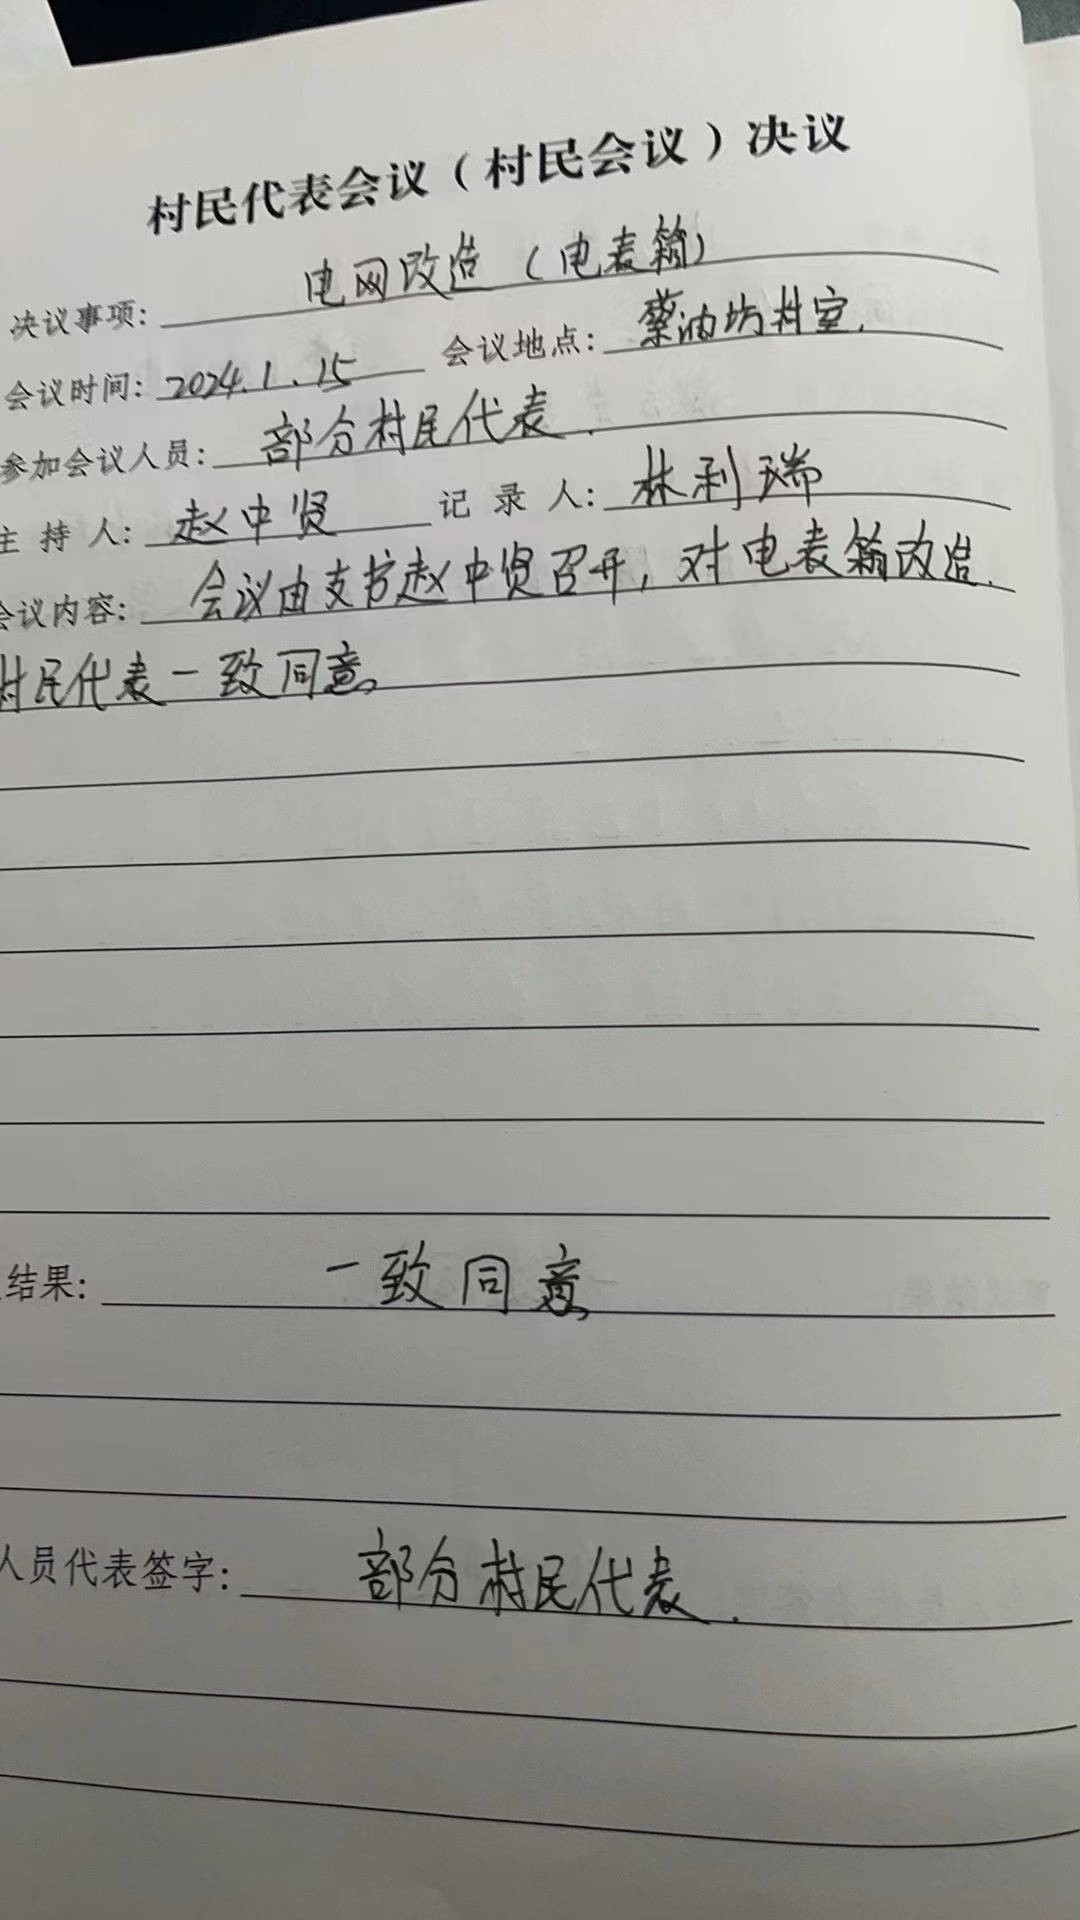 村民代表会议（村民会议）决议
决议事项：电网改造（电表箱）
会议时间：2024.1.15 会议地点：蔡油坊村室.
参加会议人员：部分村民代表.
主持人：赵中贤 记录人：林利瑞
会议内容：会议由支书赵中贤召开，对电表箱改造.
村民代表一致同意。
结果：一致同意
人员代表签字：部分村民代表.